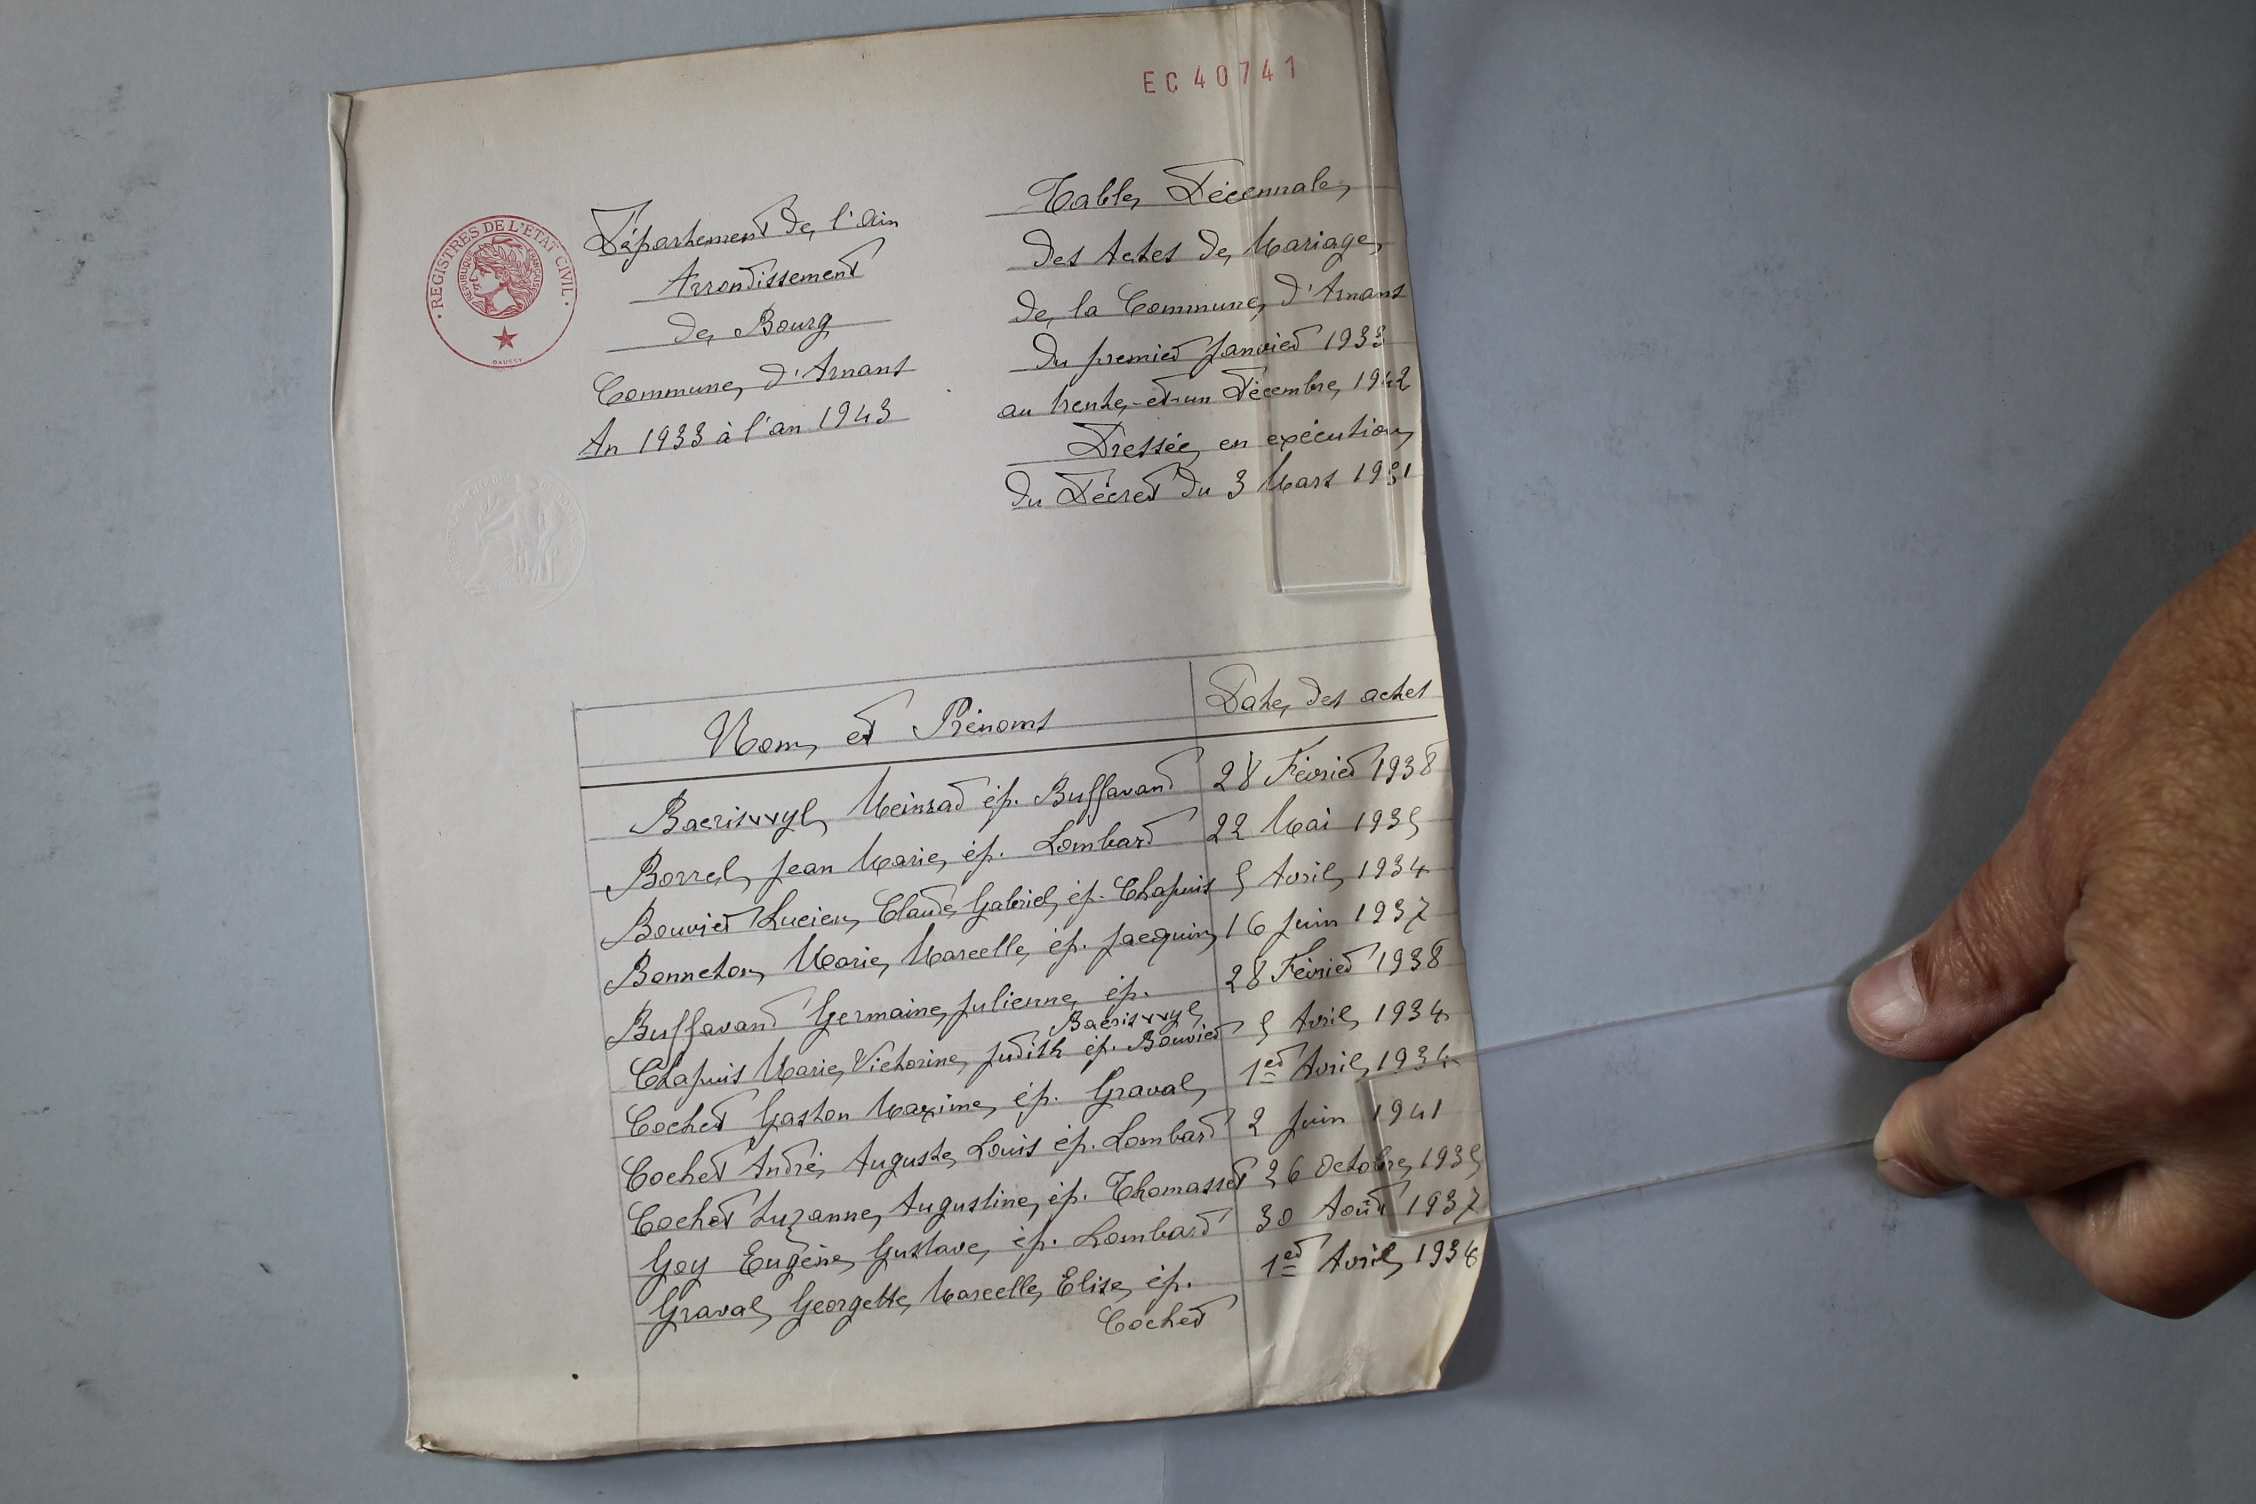 EC 40741
REGISTRES DE L'ETAT CIVIL
REPUBLIQUE FRANCAISE
Département de l'Ain
Arrondissement
de Bourg
Commune d'Arnans
An 1933 à l'an 1943
Table Décennale
des Actes de Mariage
de la Commune d'Arnans
du premier Janvier 1933
au trente-et-un Décembre 1942
Dressée en exécution
du Décret du 3 Mars 1931
Nom et Prénoms Date des actes
Baeriswyl Meinrad ép. Buffavand 28 Février 1938
Borrel Jean Marie ép. Lombard 22 Mai 1935
Bouvier Lucien Claude Gabriel ép. Chapuis 5 Avril 1934
Bonneton Marie Marcelle ép. Jacquin 16 Juin 1937
Buffavand Germaine Julienne ép. 28 Février 1938
Baeriswyl
Chapuis Marie Victorine Judith ép. Bouvier 5 Avril 1934
Cochet Gaston Maxime ép. Graval 1er Avril 1934
Cochet André Auguste Louis ép. Lombard 2 Juin 1941
Cochet Suzanne Augustine ép. Thomasset 26 Octobre 1935
Goy Eugène Gustave ép. Lombard 30 Août 1937
Graval Georgette Marcelle Elise ép. 1er Avril
Cochet